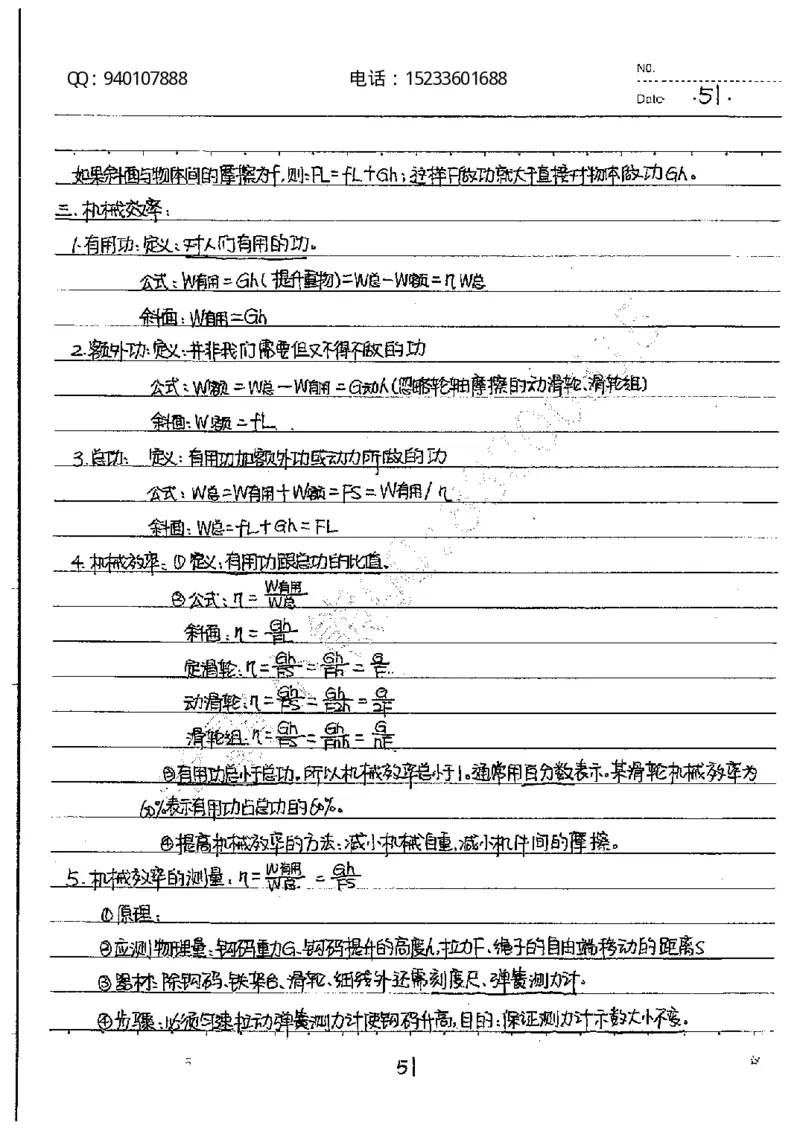 QQ：940107888 电话：15233601688 NO.
Date ·51·
如果斜面与物体间的摩擦为f,则:FL=fL+Gh;这样F做功就大于直接对物体做功Gh。
三.机械效率:
1.有用功:定义:对人们有用的功。
公式:W有用=Gh(提升重物)=W总-W额=ηW总
斜面:W有用=Gh
2.额外功:定义:并非我们需要但又不得不做的功
公式:W额=W总-W有用=G动h(忽略轮轴摩擦的动滑轮、滑轮组)
斜面:W额=fL
3.总功: 定义:有用功加额外功或动力所做的功
公式:W总=W有用+W额=FS=W有用/η
斜面:W总=fL+Gh=FL
4.机械效率:①定义:有用功跟总功的比值、
②公式:η=W有用/W总
斜面:η=Gh/FL
定滑轮:η=Gh/FS=Gh/Fh=G/F
动滑轮:η=Gh/FS=Gh/F2h=G/2F
滑轮组:η=Gh/FS=Gh/Fnh=G/nF
③有用功总小于总功,所以机械效率总小于1。通常用百分数表示。某滑轮机械效率为
60%表示有用功占总功的60%。
④提高机械效率的方法:减小机械自重、减小机件间的摩擦。
5.机械效率的测量:η=W有用/W总=Gh/FS
①原理:
②应测物理量:钩码重力G、钩码提升的高度h、拉力F、绳子的自由端移动的距离S
③器材:除钩码、铁架台、滑轮、细线外还需刻度尺、弹簧测力计。
④步骤:必须匀速拉动弹簧测力计使钩码升高,目的:保证测力计示数大小不变。
51